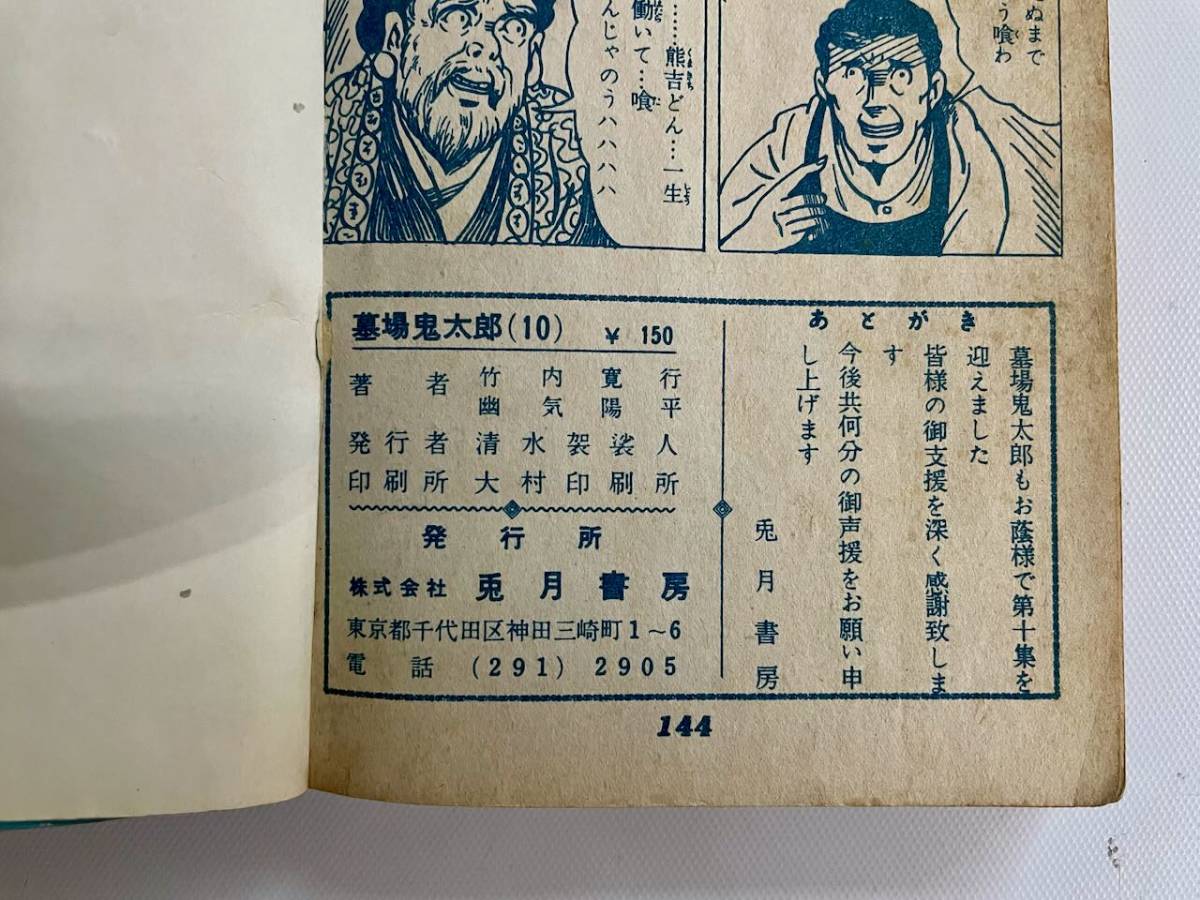 ぬまで
う喰わ
……熊吉どん…一生
働いて…喰
んじゃのうハハハハ
あとがき
墓場鬼太郎もお蔭様で第十集を
迎えました
皆様の御支援を深く感謝致しま
す
今後共何分の御声援をお願い申
し上げます
兎月書房
墓場鬼太郎(10) ¥ 150
著者 竹内寛行
幽気陽平
発行者 清水袈裟人
印刷所 大村印刷所
発行所
株式会社 兎月書房
東京都千代田区神田三崎町1~6
電話 (291) 2905
144